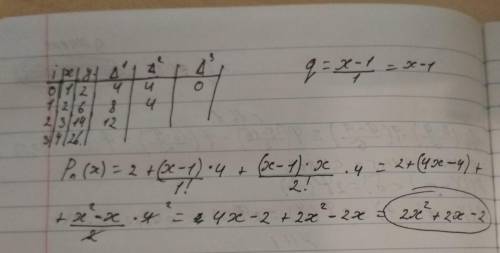 i x y Δ¹ Δ² Δ³
0 1 2 4 4 0
1 2 6 8 4
2 3 14 12
3 4 26
q = (x-1)/1 = x-1
Pₙ(x) = 2 + (x-1)/1! · 4 + (x-1)·x/2! · 4 = 2 + (4x-4) +
+ (x²-x)/2 · 4² = 4x-2 + 2x² - 2x = 2x² + 2x - 2